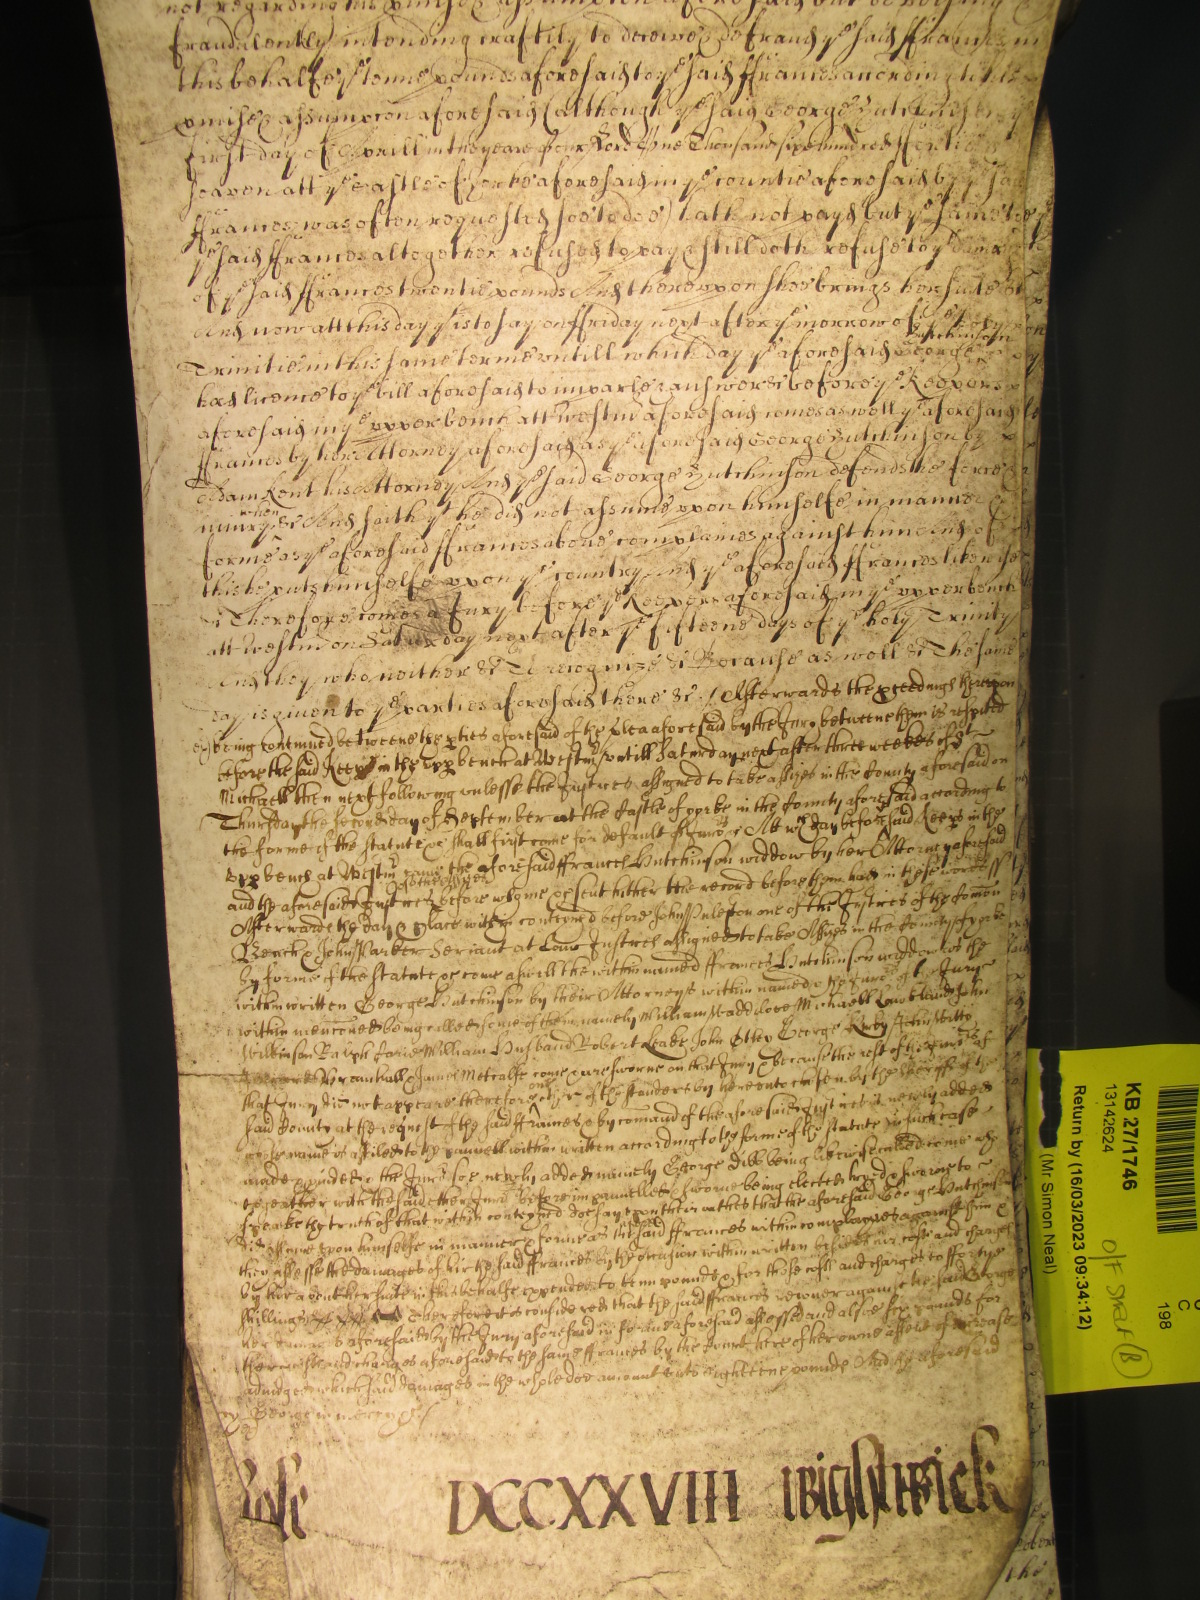 not regarding his promise & assumption aforesaid but devising &
fraudulently intending craftily to deceive & defraud ye said ffrances in
this behalfe ye tenne pounds aforesaid to ye said ffrances according to his
pmise & assumpcon aforesaid (although ye said George Hutchinson
first day of Aprill in the yeare of our Lord One Thousand six hundred ffortie &
seaven att ye castle of Yorke aforesaid in ye countie aforesaid by ye said
ffrances was often requested soe to doe) hath not payd but ye same to
ye said ffrances altogether refused to pay & still doth refuse to ye damage
of ye said ffrances twentie pounds And thereupon shee brings her suite &c
And now att this day yt is to say on ffriday next after ye morrow of ye holy
Trinitie in this same terme untill which day ye aforesaid George Hutchinson
had licence to ye bill aforesaid to imparle & answere &c before ye Keepers
aforesaid in ye upper bench att Westmr aforesaid comes as well ye aforesaid
ffrances by her Attorney aforesaid as ye aforesaid George Hutchinson by
Adam Kent his Attorney And ye said George Hutchinson defends the force &
iniury when &c And saith yt he did not assume upon himselfe in manner &
forme as ye aforesaid ffrances above complaines against him And of
this he puts himselfe upon ye country And ye aforesaid ffrances likewise
&c Therefore comes a Jury before ye Keepers aforesaid in ye upper bench
att Westmr on Saturday next after ye fifteene days of ye holy Trinity
And they who neither &c To recognize &c Because as well &c The same
day is given to ye parties aforesaid there &c / Afterwards the pceedings hereupon
being continued betweene the pties aforesaid of the Plea aforesaid by the Jury betweene them is respited
before the said Keeps in the upp bench at Westmr untill Saturday next after three weekes of St
Michaell then next following unlesse the Justices assigned to take assizes in the County aforesaid on
Thursday the second day of September at the Castle of Yorke in the County aforesaid according to
the forme of the statute &c shall first come for default of Jurors &c Att wch day before said Keeps in the
upp bench at Westmr came the aforesaid ffrances Hutchinson widdow by her Attorney aforesaid
and the aforesaid Justices before whome &c sent hither the record before them had in these words
Afterwards the day & place within conteyned before John Puleston one of the Justices of the Comon
Bench & John Parker Seriant at Law Justices assigned to take Assizes in the County of Yorke
by forme of the Statute &c come aswell the within named ffrances Hutchinson widdow as the
within written George Hutchinson by their Attorneys within named & the Jurors of the Jury
within menconed being called some of them namely William Waddilove Michaell John
Wilkinson Ralph William Husband Robert Leake John Otley George Kirby John
Bramhall & James Metcalfe come & are sworne on that Jury & because the rest of the Jurors of
that Jury did not appeare therefore others of the standers by hereunto chosen by the Sheriff of the
said County at the request of the said ffrances & by comand of the aforesaid Justices is newly added
whose name is affiled to the pannell within written according to the forme of the Statute in such case
made & pvided & the Juror soe newly added namely George Dibb being likewise called come who
together with the said other Jurors before impannelled & sworne being elected tryed & sworne to
speake the truth of that within conteyned doe say upon their oathes that the aforesaid George Hutchinson
did assume upon himselfe in manner & forme as the said ffrances within complaynes against him &
they assesse the damages of her the said ffrances by the occasion within written besides her costs and charges
by her about her suite in this behalfe expended to tenn pounds & for those costs and charges to fforty
shillings Therefore it is considered that the said ffrances recover against the said George
her damages aforesaid by the Jury aforesaid in forme aforesaid assessed and alsoe six pounds for
her costs and charges aforesaid to the same ffrances by the Court here of her owne assent of increase
adiudged which said damages in the whole doe amount unto eighteene pounds And the aforesaid
George in mercy &c /
DCCXXVIII Wightwick
KB 27/1746
13142624
Return by (16/03/2023 09:34:12)
(Mr Simon Neal)
C
198